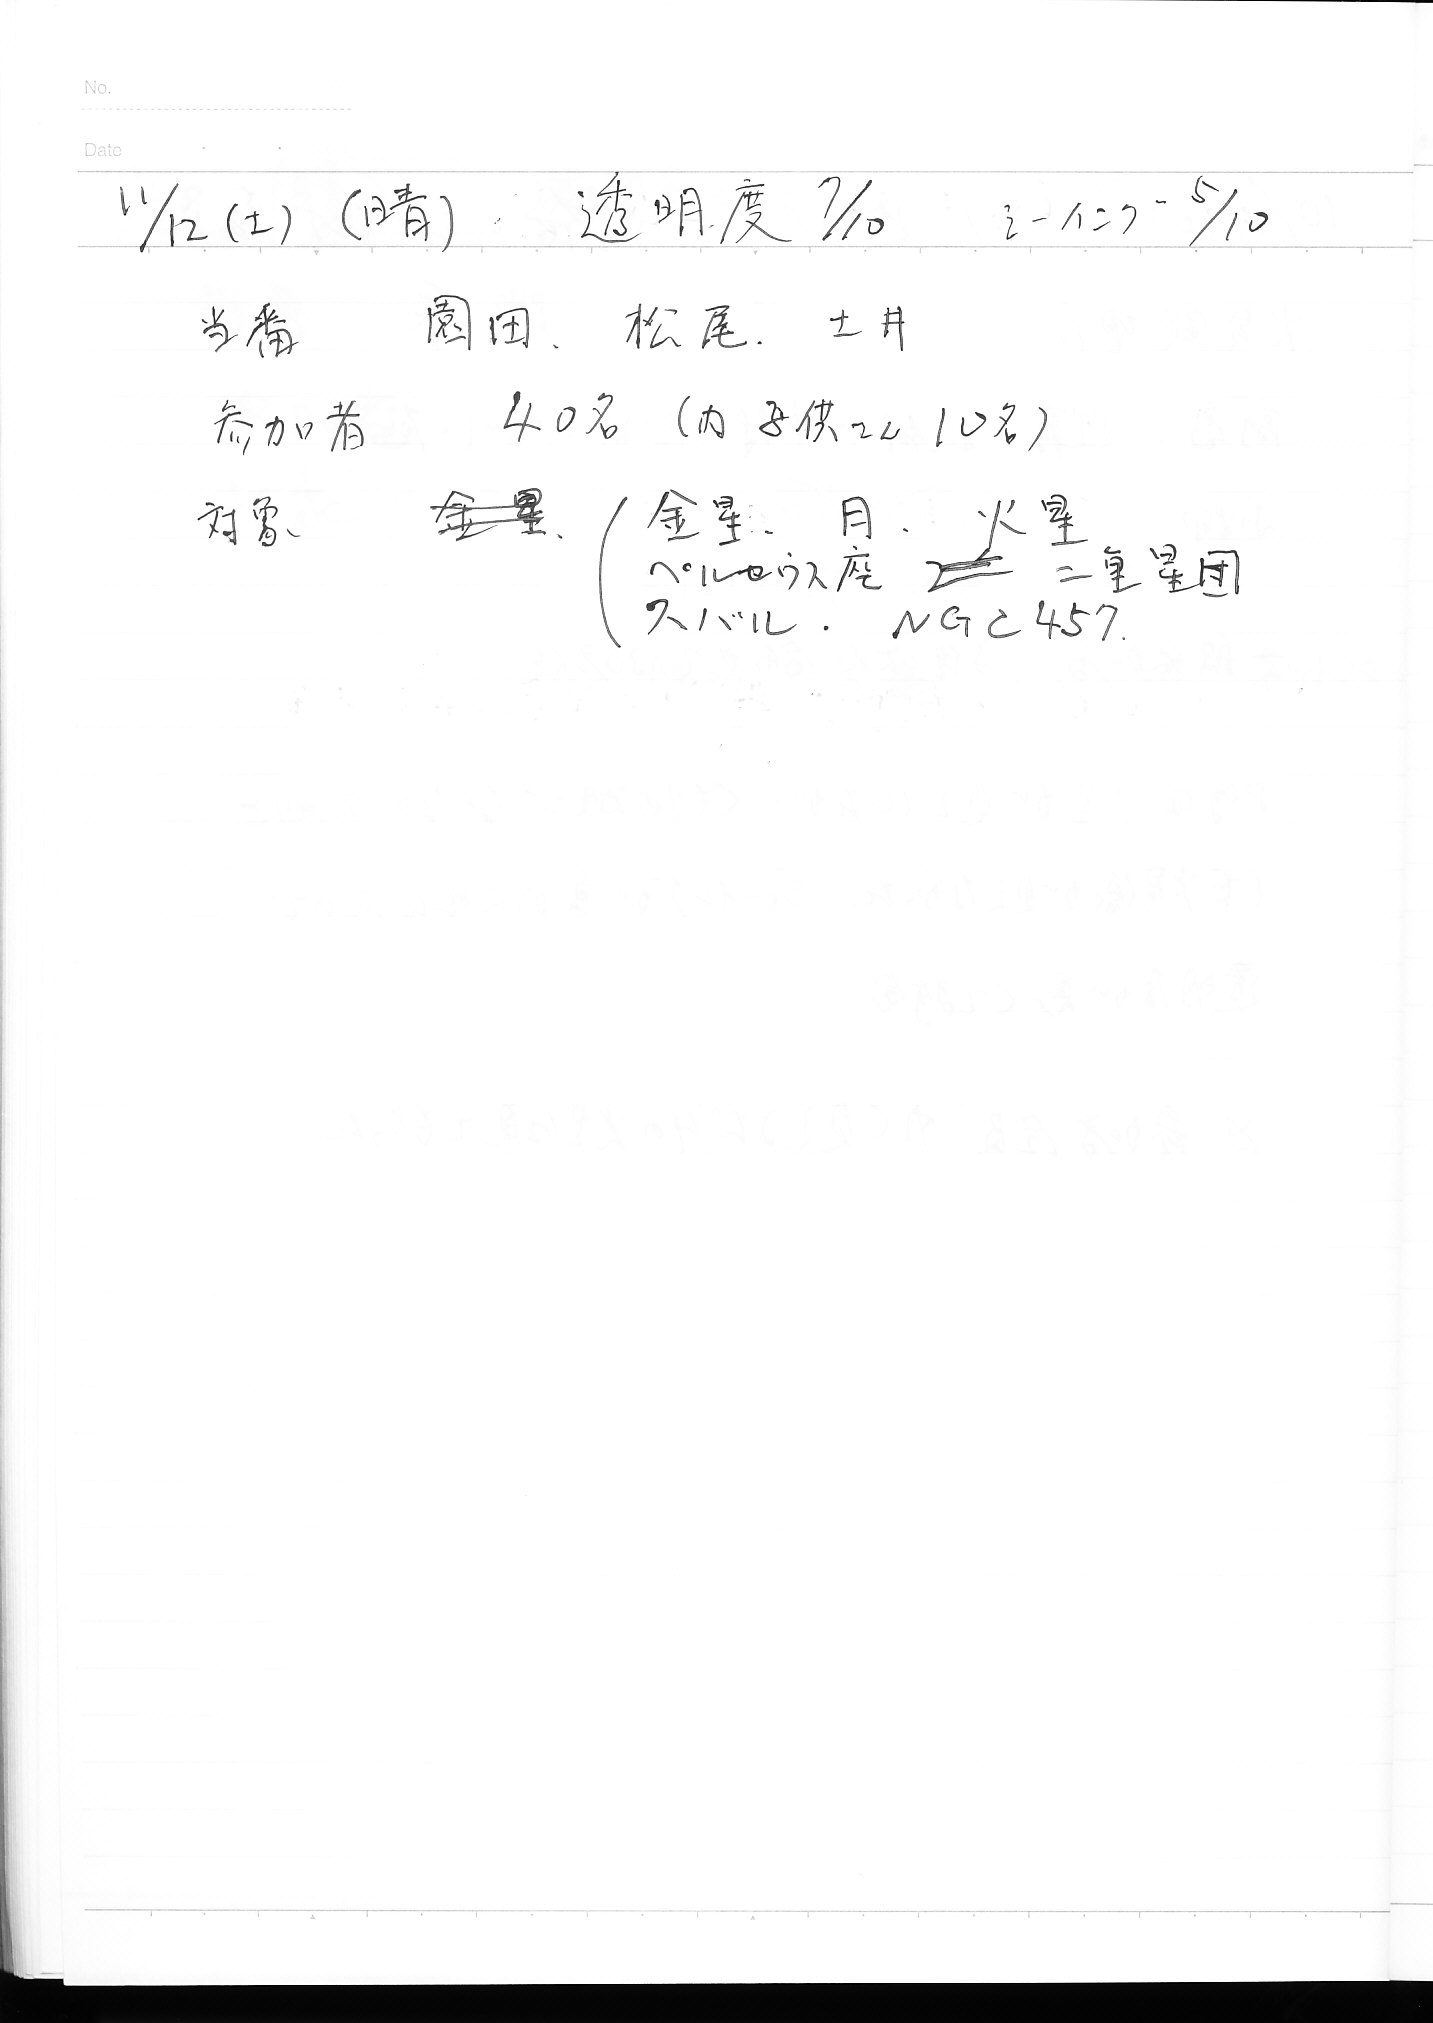 No.
Date
11/12(土) (晴) 透明度 7/10 シーイング 5/10
当番 園田、松尾、土井
参加者 40名 (内子供さん10名)
対象 金星、 (金星、月、火星
ペルセウス座 二重星団
スバル. NGC457.